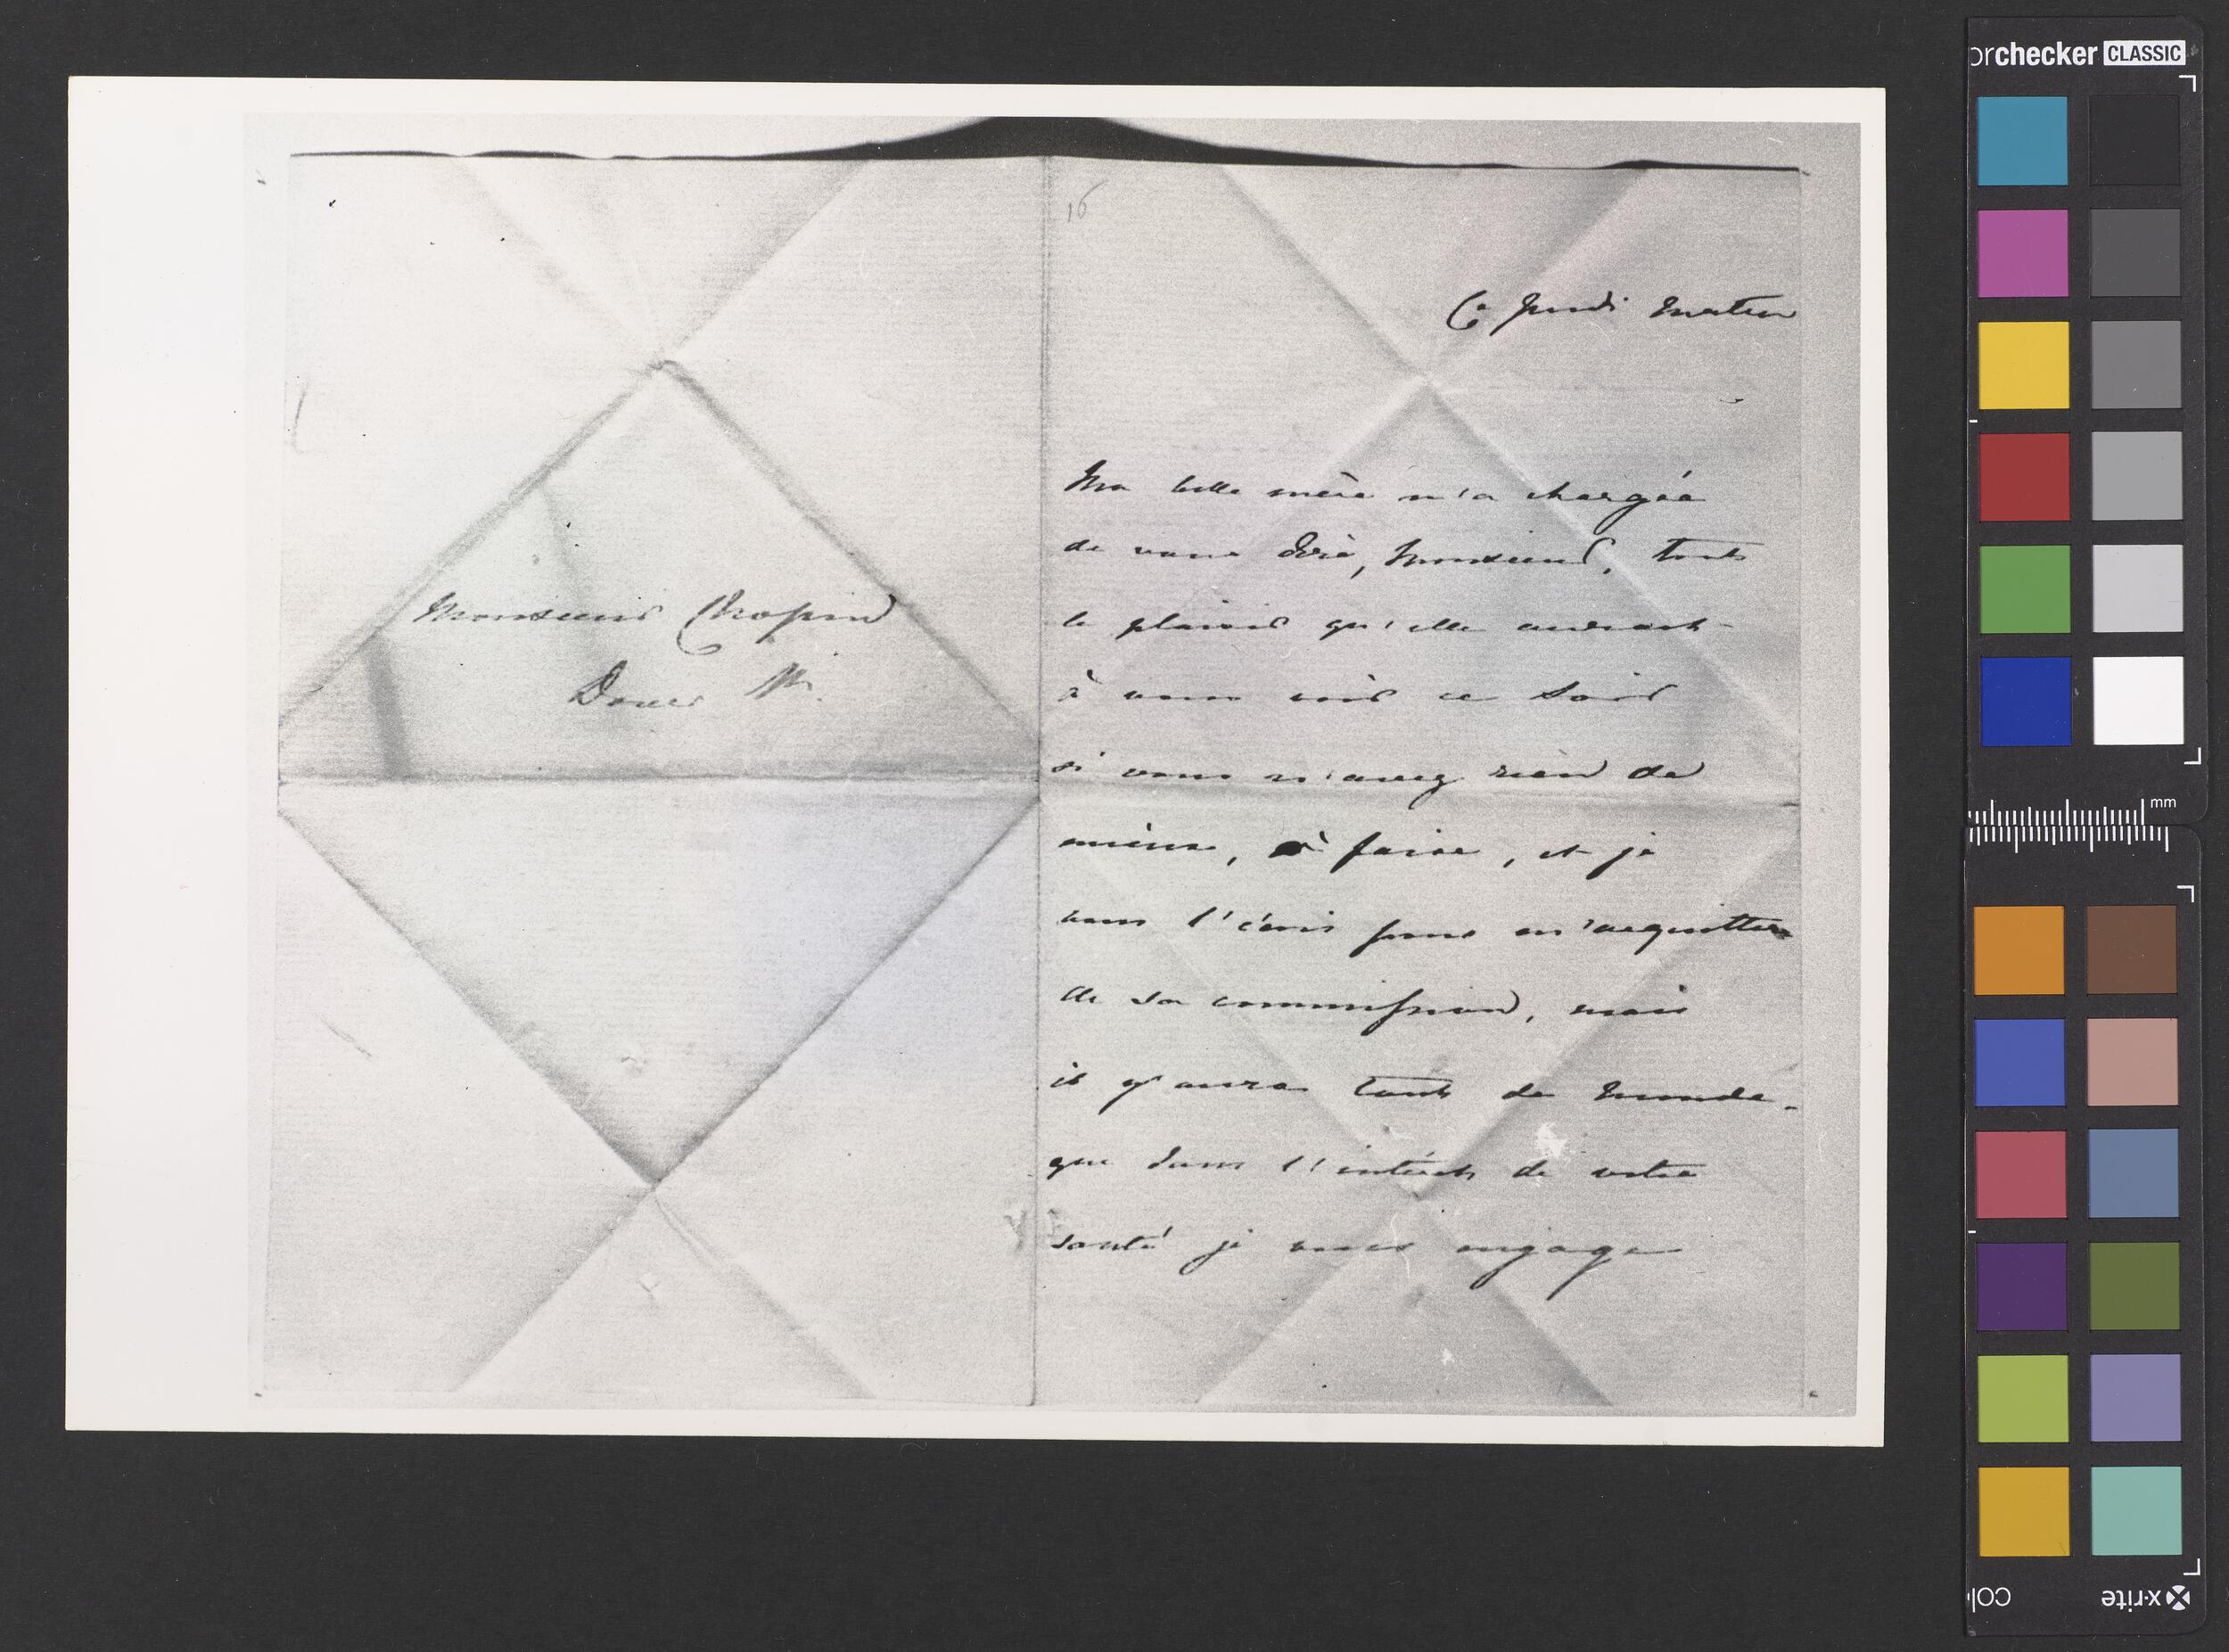 Monsieur Chopin
16
Ce jeudi matin
Ma belle mère m'a chargée
de vous dire, Monsieur, tout
le plaisir qu'elle aurait
à vous voir ce soir
si vous n'avez rien de
mieux, à faire, et je
vous l'écris pour m'acquitter
de sa commission, mais
il y aura tant de monde
que dans l'intérêt de votre
santé je vous engage
orchecker CLASSIC
mm
x-rite
colo